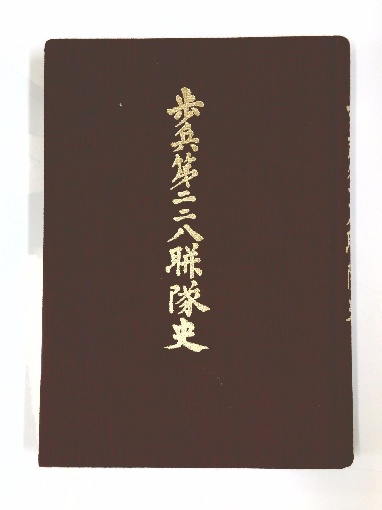 歩兵第二二八聯隊史